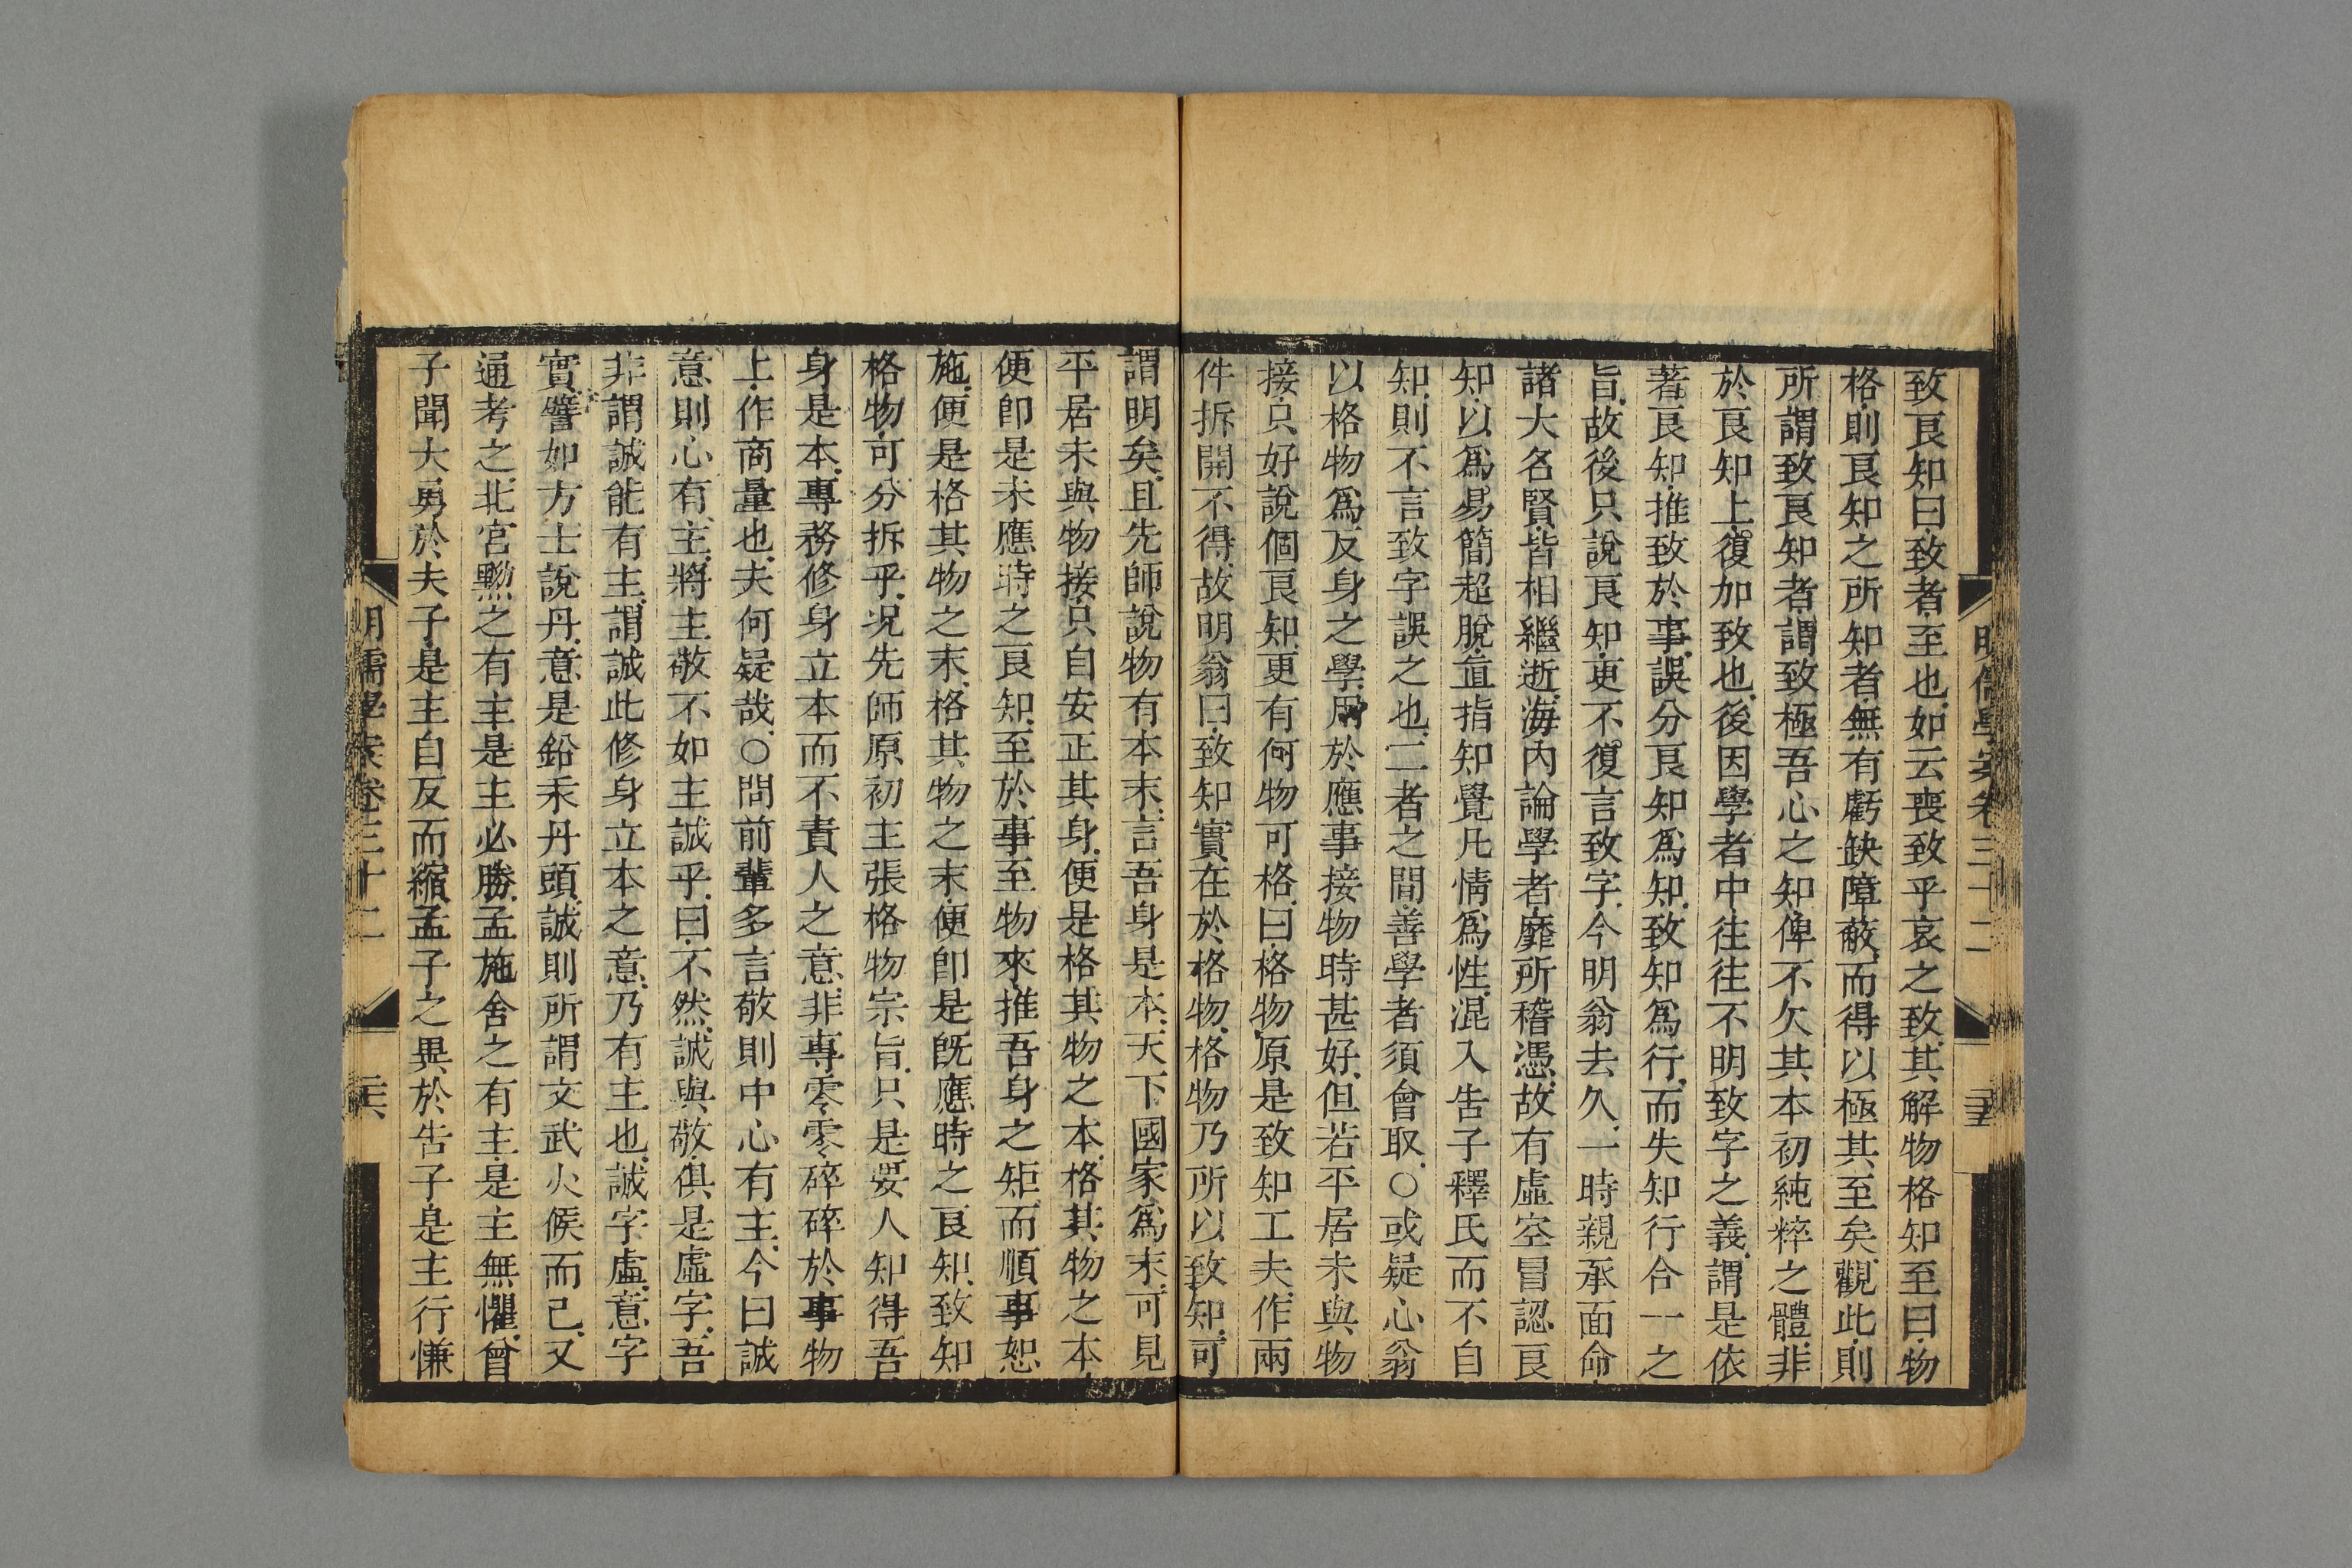 明儒學案卷三十二
致良知曰致者至也如云喪致乎哀之致其解物格知至曰物
格則良知之所知者無有虧缺障蔽而得以極其至矣觀此則
所謂致良知者謂致極吾心之知俾不欠其本初純粹之體非
於良知上復加致也後因學者中往往不明致字之義謂是依
著良知推致於事誤分良知為知致知為行而失知行合一之
旨故後只說良知更不復言致字今明翁去久一時親承面命
諸大名賢皆相繼逝海內論學者靡所稽憑故有虛空冒認良
知以爲易簡超脫直指知覺凡情爲性混入告子釋氏而不自
知則不言致字誤之也二者之間善學者須會取○或疑心翁
以格物爲反身之學用於應事接物時甚好但若平居未與物
接只好說個良知更有何物可格曰格物原是致知工夫作兩
件拆開不得故明翁曰致知實在於格物格物乃所以致知可
謂明矣且先師說物有本末言吾身是本天下國家爲末可見
平居未與物接只自安正其身便是格其物之本格其物之本
便卽是未應時之良知至於事至物來推吾身之矩而順事恕
施便是格其物之末格其物之末便卽是旣應時之良知致知
格物可分拆乎况先師原初主張格物宗旨只是要人知得吾
身是本專務修身立本而不責人之意非專零零碎碎於事物
上作商量也夫何疑哉○問前輩多言敬則中心有主今曰誠
意則心有主將主敬不如主誠乎曰不然誠與敬俱是虛字吾
非謂誠能有主謂誠此修身立本之意乃有主也誠字虛意字
實譬如方士說丹意是鉛汞丹頭誠則所謂文武火候而已又
通考之北宮黝之有主是主必勝孟施舍之有主是主無懼曾
子聞大勇於夫子是主自反而縮孟子之異於告子是主行慊
明儒學案卷三十二